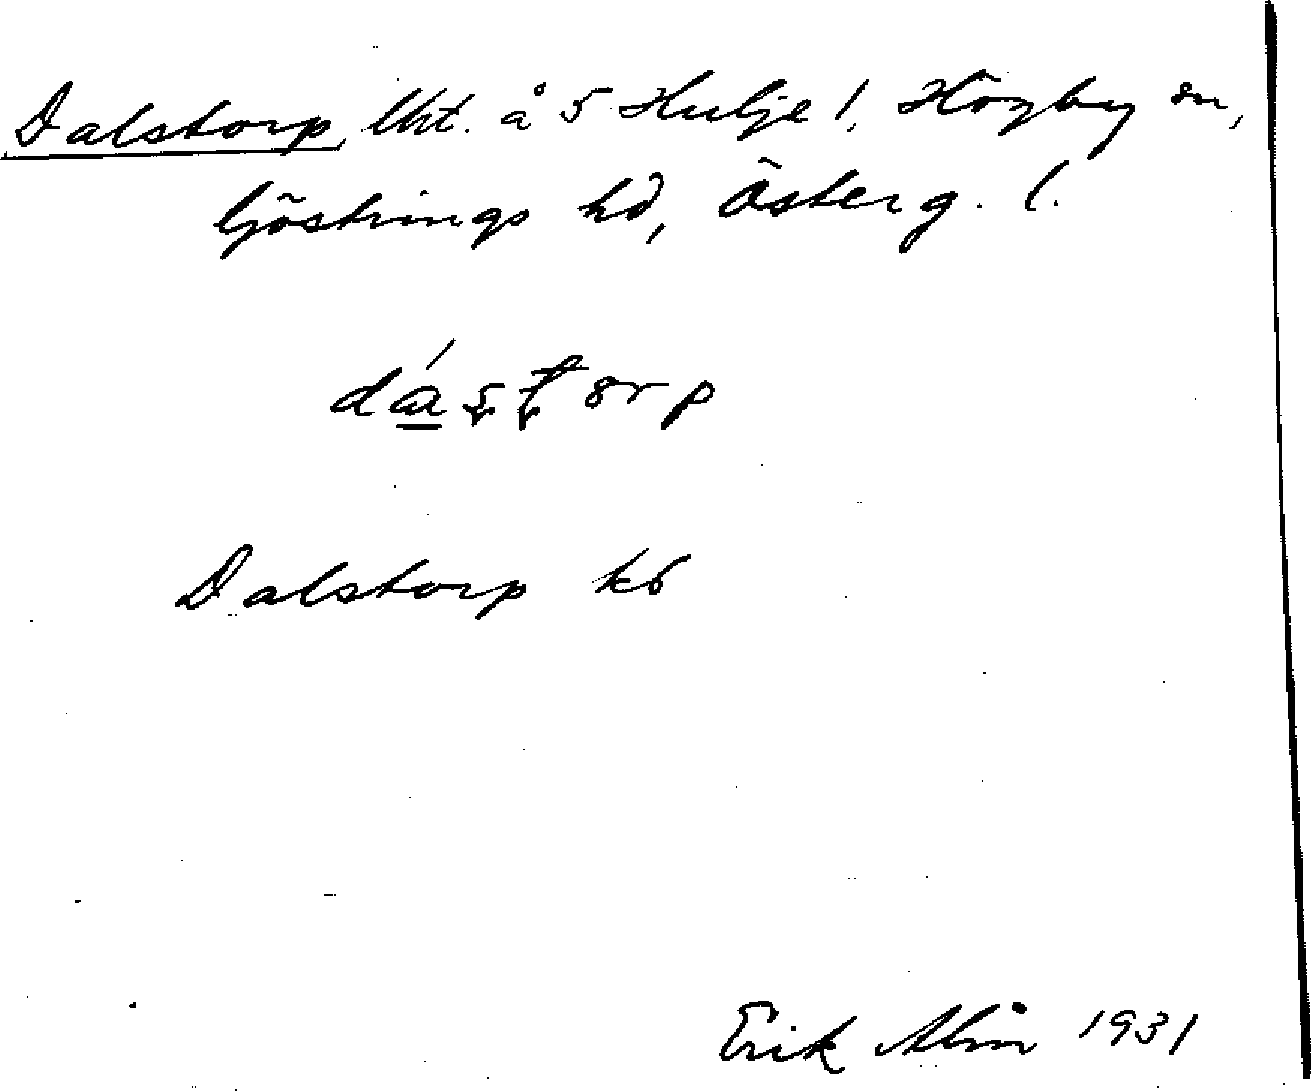 Dalstorp, lht. å 5 Hulje 1, Högby sn,
Göstrings hd, Österg. l.
Dalstorp kb
Erik Alin 1931